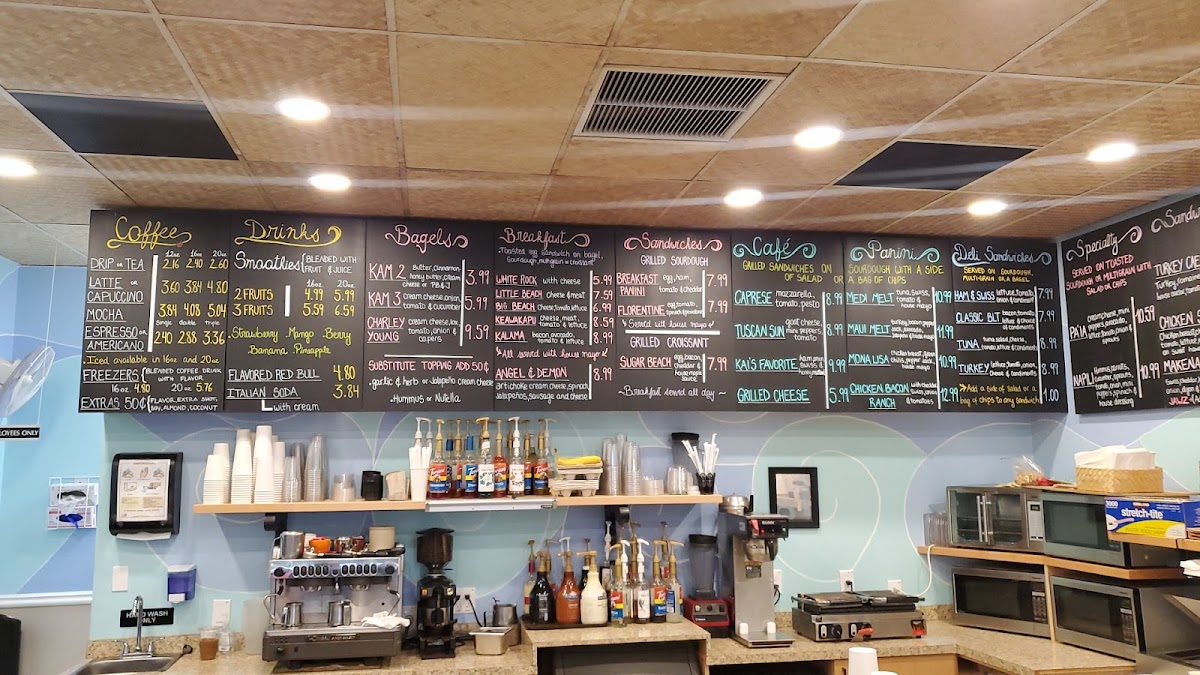 Coffee
12oz 16oz 20oz
DRIP OR TEA 2.16 2.40 2.60
LATTE OR CAPUCCINO 3.60 3.84 4.80
MOCHA 3.84 4.08 5.04
Single double triple
ESPRESSO OR AMERICANO 2.40 2.88 3.36
Iced available in 16oz and 20oz
FREEZERS BLENDED COFFEE DRINK WITH FLAVOR
16oz 4.80 20oz 5.76
EXTRAS 50¢ FLAVOR, EXTRA SHOT, SOY, ALMOND, COCONUT
Drinks
Smoothies BLENDED WITH FRUIT & JUICE
16oz 20oz
2 FRUITS 4.99 5.99
3 FRUITS 5.59 6.59
Strawberry Mango Berry
Banana Pineapple
FLAVORED RED BULL 4.80
ITALIAN SODA 3.84
with cream
Bagels
KAM 2 Butter, Cinnamon, honey butter, cream cheese or PB & J 3.99
KAM 3 cream cheese, onion, tomato & cucumber 5.99
CHARLEY YOUNG cream cheese, lox, tomato, onion & capers 9.59
SUBSTITUTE TOPPING ADD 50¢
garlic & herb or Jalapeño cream cheese
Hummus or Nutella
Breakfast
Toasted egg sandwich on bagel,
sourdough, multigrain or croissant
WHITE ROCK with cheese 5.99
LITTLE BEACH cheese & meat 7.59
BIG BEACH cheese, onion, tomato & lettuce 6.99
KEAWAKAPU cheese, meat, tomato & lettuce 8.59
KALAMA bacon, avocado, tomato & lettuce 8.99
*All served with house mayo
ANGEL & DEMON 8.99
artichoke cream cheese, spinach,
Jalapeños, sausage and cheese
Sandwiches
GRILLED SOURDOUGH
BREAKFAST PANINI egg, ham, tomato, cheddar 7.99
FLORENTINE egg, tomato, spinach, cheddar 7.99
Served with house mayo
GRILLED CROISSANT
SUGAR BEACH egg, bacon, cheddar & house mayo 7.99
~Breakfast served all day~
Café
GRILLED SANDWICHES ON
OF SALAD OR
CAPRESE mozzarella, tomato, pesto 8.99
TUSCAN SUN goat cheese, mini peppers, tomato 8.99
KAI'S FAVORITE 9.99
GRILLED CHEESE 5.99
Panini
SOURDOUGH WITH A SIDE
A BAG OF CHIPS
MEDI MELT tuna, swiss, tomato & house mayo 10.99
MAUI MELT 11.99
MONA LISA 10.99
CHICKEN BACON RANCH with cheddar, swiss, onion & tomatoes 12.99
Deli Sandwiches
SERVED ON SOURDOUGH,
MULTI-GRAIN OR A BAGEL
HAM & SWISS lettuce, tomato, onion & condiments 7.99
CLASSIC BLT bacon, tomato, lettuce & choice of condiments 7.99
TUNA tuna salad, cheese, tomato, lettuce & condiments 8.99
TURKEY lettuce, tomato, onion, cheese & choice of condiments 8.99
Add a side of salad or a
bag of chips to any sandwich 1.00
Specialty
SERVED ON TOASTED
SOURDOUGH OR MULTIGRAIN WITH
SALAD OR CHIPS
PA'IA 10.59
NAPILI 10.99
TURKEY
CHICKEN
MAKENA
HAND WASH
ONLY
stretch-tite